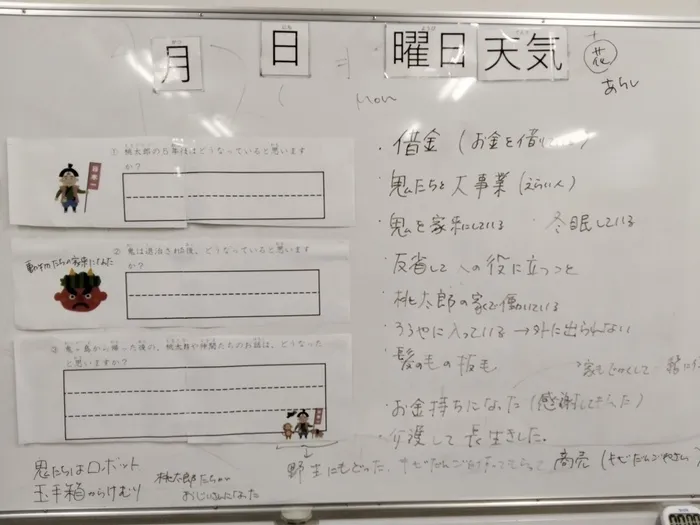 月 日 曜日 天気 花
あらし
Mon
① 桃太郎の5年後はどうなっていると思いますか？
・借金（お金を借り
・鬼たちと大事業（えらい人）
・鬼を家来にしている ・冬眠している
② 鬼は退治された後、どうなっていると思いますか？
・反省して 人の役に立つこと
・桃太郎の家で働いている
・ろうやに入っている → 外に出られない
・髪の毛の
③ 鬼ヶ島から帰った後の、桃太郎や仲間たちのお話は、どうなったと思いますか？
・お金持ちになった（感謝してもらった）
して長生きした。
野生にもどった、きびだんごを
商売（きびだんごやさん）
鬼たちはロボット
玉手箱からけむり
桃太郎たちが
おじいさんになった